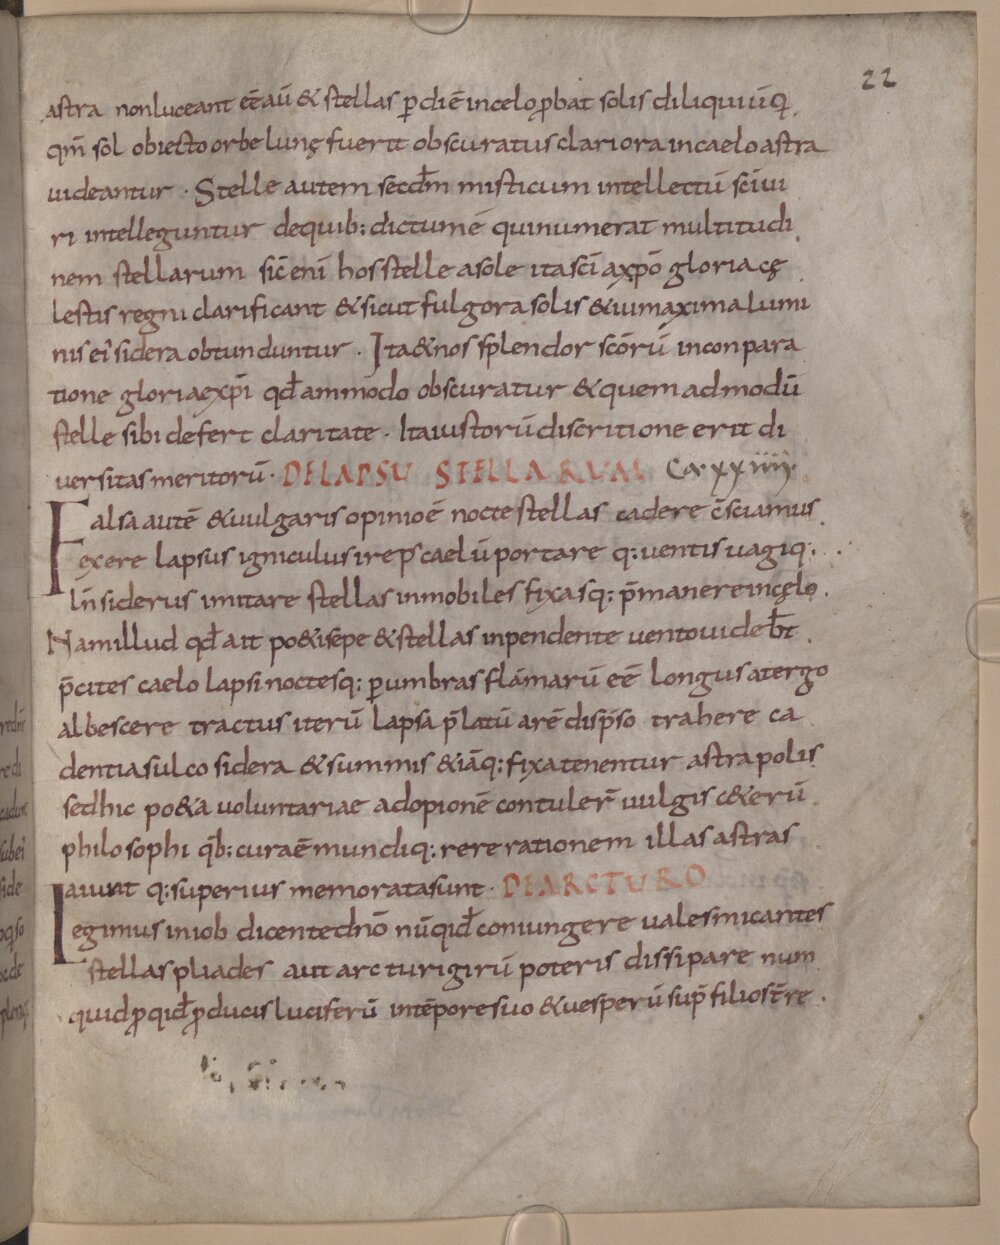 22
astra non luceant eē aū & stellas p̱ diē in celo p̱bat solis diliquiū q̱
qm̄ sol obiecto orbe lunę fuerit obscuratus clariora in caelo astra
uideantur · Stelle autem secd̄m misticum intellectū sc̄i ui
ri intelleguntur de quib; dictum ē qui numerat multitudi
nem stellarum sic̄ enī hos stelle a sole ita sc̄i a xp̄o gloria cę
lestis regni clarificant & sicut fulgora solis & ui maxima lumi
nis ei sidera obtunduntur · Ita & nos splendor sc̄orū in conpara
tione gloriae xp̄i qd̄ammodo obscuratur & quemadmodū
stelle sibi defert claritate · Ita iustorū discritione erit di
uersitas meritorū · DE LAPSU STELLARUM Ca· xxiiii·
Falsa autē & uulgaris opinio ē nocte stellas cadere c̄ sciamus
ex ere lapsus igniculus ire p̱ caelū portare q; uentis uagiq; .
ln̄ siderus imitare stellas inmobiles fixasq; p̄manere in cęlo .
Nam illud qd̄ ait po&i sepe & stellas inpendente uento uideb̄t .
p̄cites caelo lapsi noctesq; p̱ umbras flāmarū eē longus a tergo
albescere tractus iterū lapsa p̄latū arē disp̱so trahere ca
dentia sulco sidera & summis & iāq; fixa tenentur astra polis
sed hic po&a uoluntariae ad opionē contuler̄ uulgis c&erū
philosophi qb̄; cura ē mundiq; rere rationem illas astras
aiunt q; superius memorata sunt · DE ARCTURO
Legimus in iob dicente dn̄o nūqid̄ coniungere uales micantes
stellas pliades aut arcturi girū poteris dissipare num
quid p̱qid̄ p̱ducis luciferū in tēpore suo & uesperū sup̱ filios t̄re .